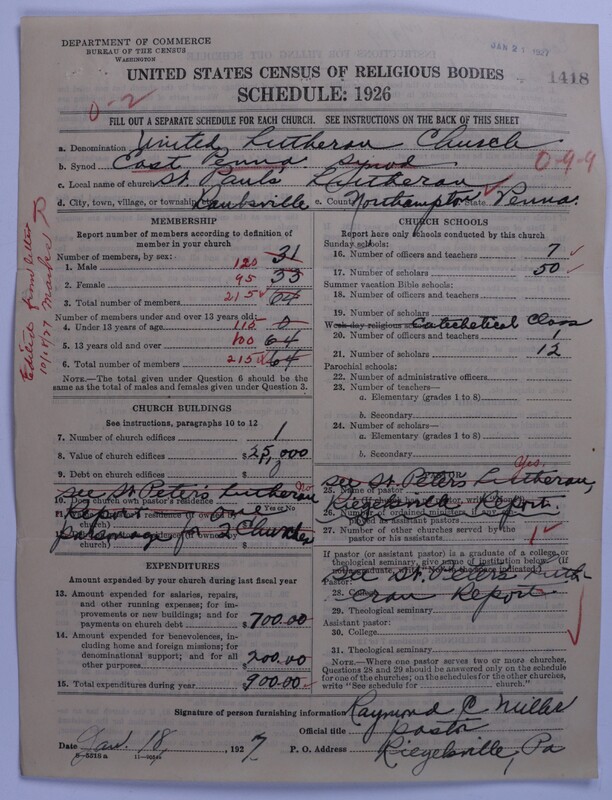 DEPARTMENT OF COMMERCE
BUREAU OF THE CENSUS
WASHINGTON
JAN 21 1927
1418
UNITED STATES CENSUS OF RELIGIOUS BODIES
SCHEDULE: 1926
0-2
FILL OUT A SEPARATE SCHEDULE FOR EACH CHURCH. SEE INSTRUCTIONS ON THE BACK OF THIS SHEET
a. Denomination United Lutheran Church
b. Synod East Penna. Synod
0-9-9
c. Local name of church St. Paul's Lutheran
d. City, town, village, or township Raubsville e. County Northampton State Penna.
Edited from letter 10/10/27
MEMBERSHIP
Report number of members according to definition of member in your church
Number of members, by sex:
1. Male 120 31
2. Female 95 33
3. Total number of members 215 64
Number of members under and over 13 years old:
4. Under 13 years of age 115 0
5. 13 years old and over 100 64
6. Total number of members 215 64
NOTE.—The total given under Question 6 should be the same as the total of males and females given under Question 3.
CHURCH BUILDINGS
See instructions, paragraphs 10 to 12
7. Number of church edifices 1
8. Value of church edifices $ 25,000
9. Debt on church edifices $ 0
see St. Peter's Lutheran No
10. Does church own pastor's residence Yes or No
Report - One
parsonage for 2 Churches
EXPENDITURES
Amount expended by your church during last fiscal year
13. Amount expended for salaries, repairs, and other running expenses; for improvements or new buildings; and for payments on church debt $ 700.00
14. Amount expended for benevolences, including home and foreign missions; for denominational support; and for all other purposes $ 200.00
15. Total expenditures during year $ 900.00
CHURCH SCHOOLS
Report here only schools conducted by this church
Sunday schools:
16. Number of officers and teachers 7
17. Number of scholars 50
Summer vacation Bible schools:
18. Number of officers and teachers
19. Number of scholars
Week-day religious schools: Catechetical Class
20. Number of officers and teachers 1
21. Number of scholars 12
Parochial schools:
22. Number of administrative officers
23. Number of teachers—
a. Elementary (grades 1 to 8)
b. Secondary
24. Number of scholars—
a. Elementary (grades 1 to 8)
b. Secondary
PASTOR Yes.
see St. Peter's Lutheran,
25. Name of pastor
Riegelsville Report.
27. Number of other churches served by the pastor or his assistants 1
If pastor (or assistant pastor) is a graduate of a college or theological seminary, give name of institution below.
Pastor: see St. Peter's Luth-
28. College
eran Report.
29. Theological seminary
Assistant pastor:
30. College
31. Theological seminary
NOTE.—Where one pastor serves two or more churches, Questions 28 and 29 should be answered only on the schedule for one of the churches; on the schedules for the other churches, write "See schedule for church."
Signature of person furnishing information Raymond C. Miller
Official title pastor
Date Jan. 18, 1927 P. O. Address Riegelsville, Pa